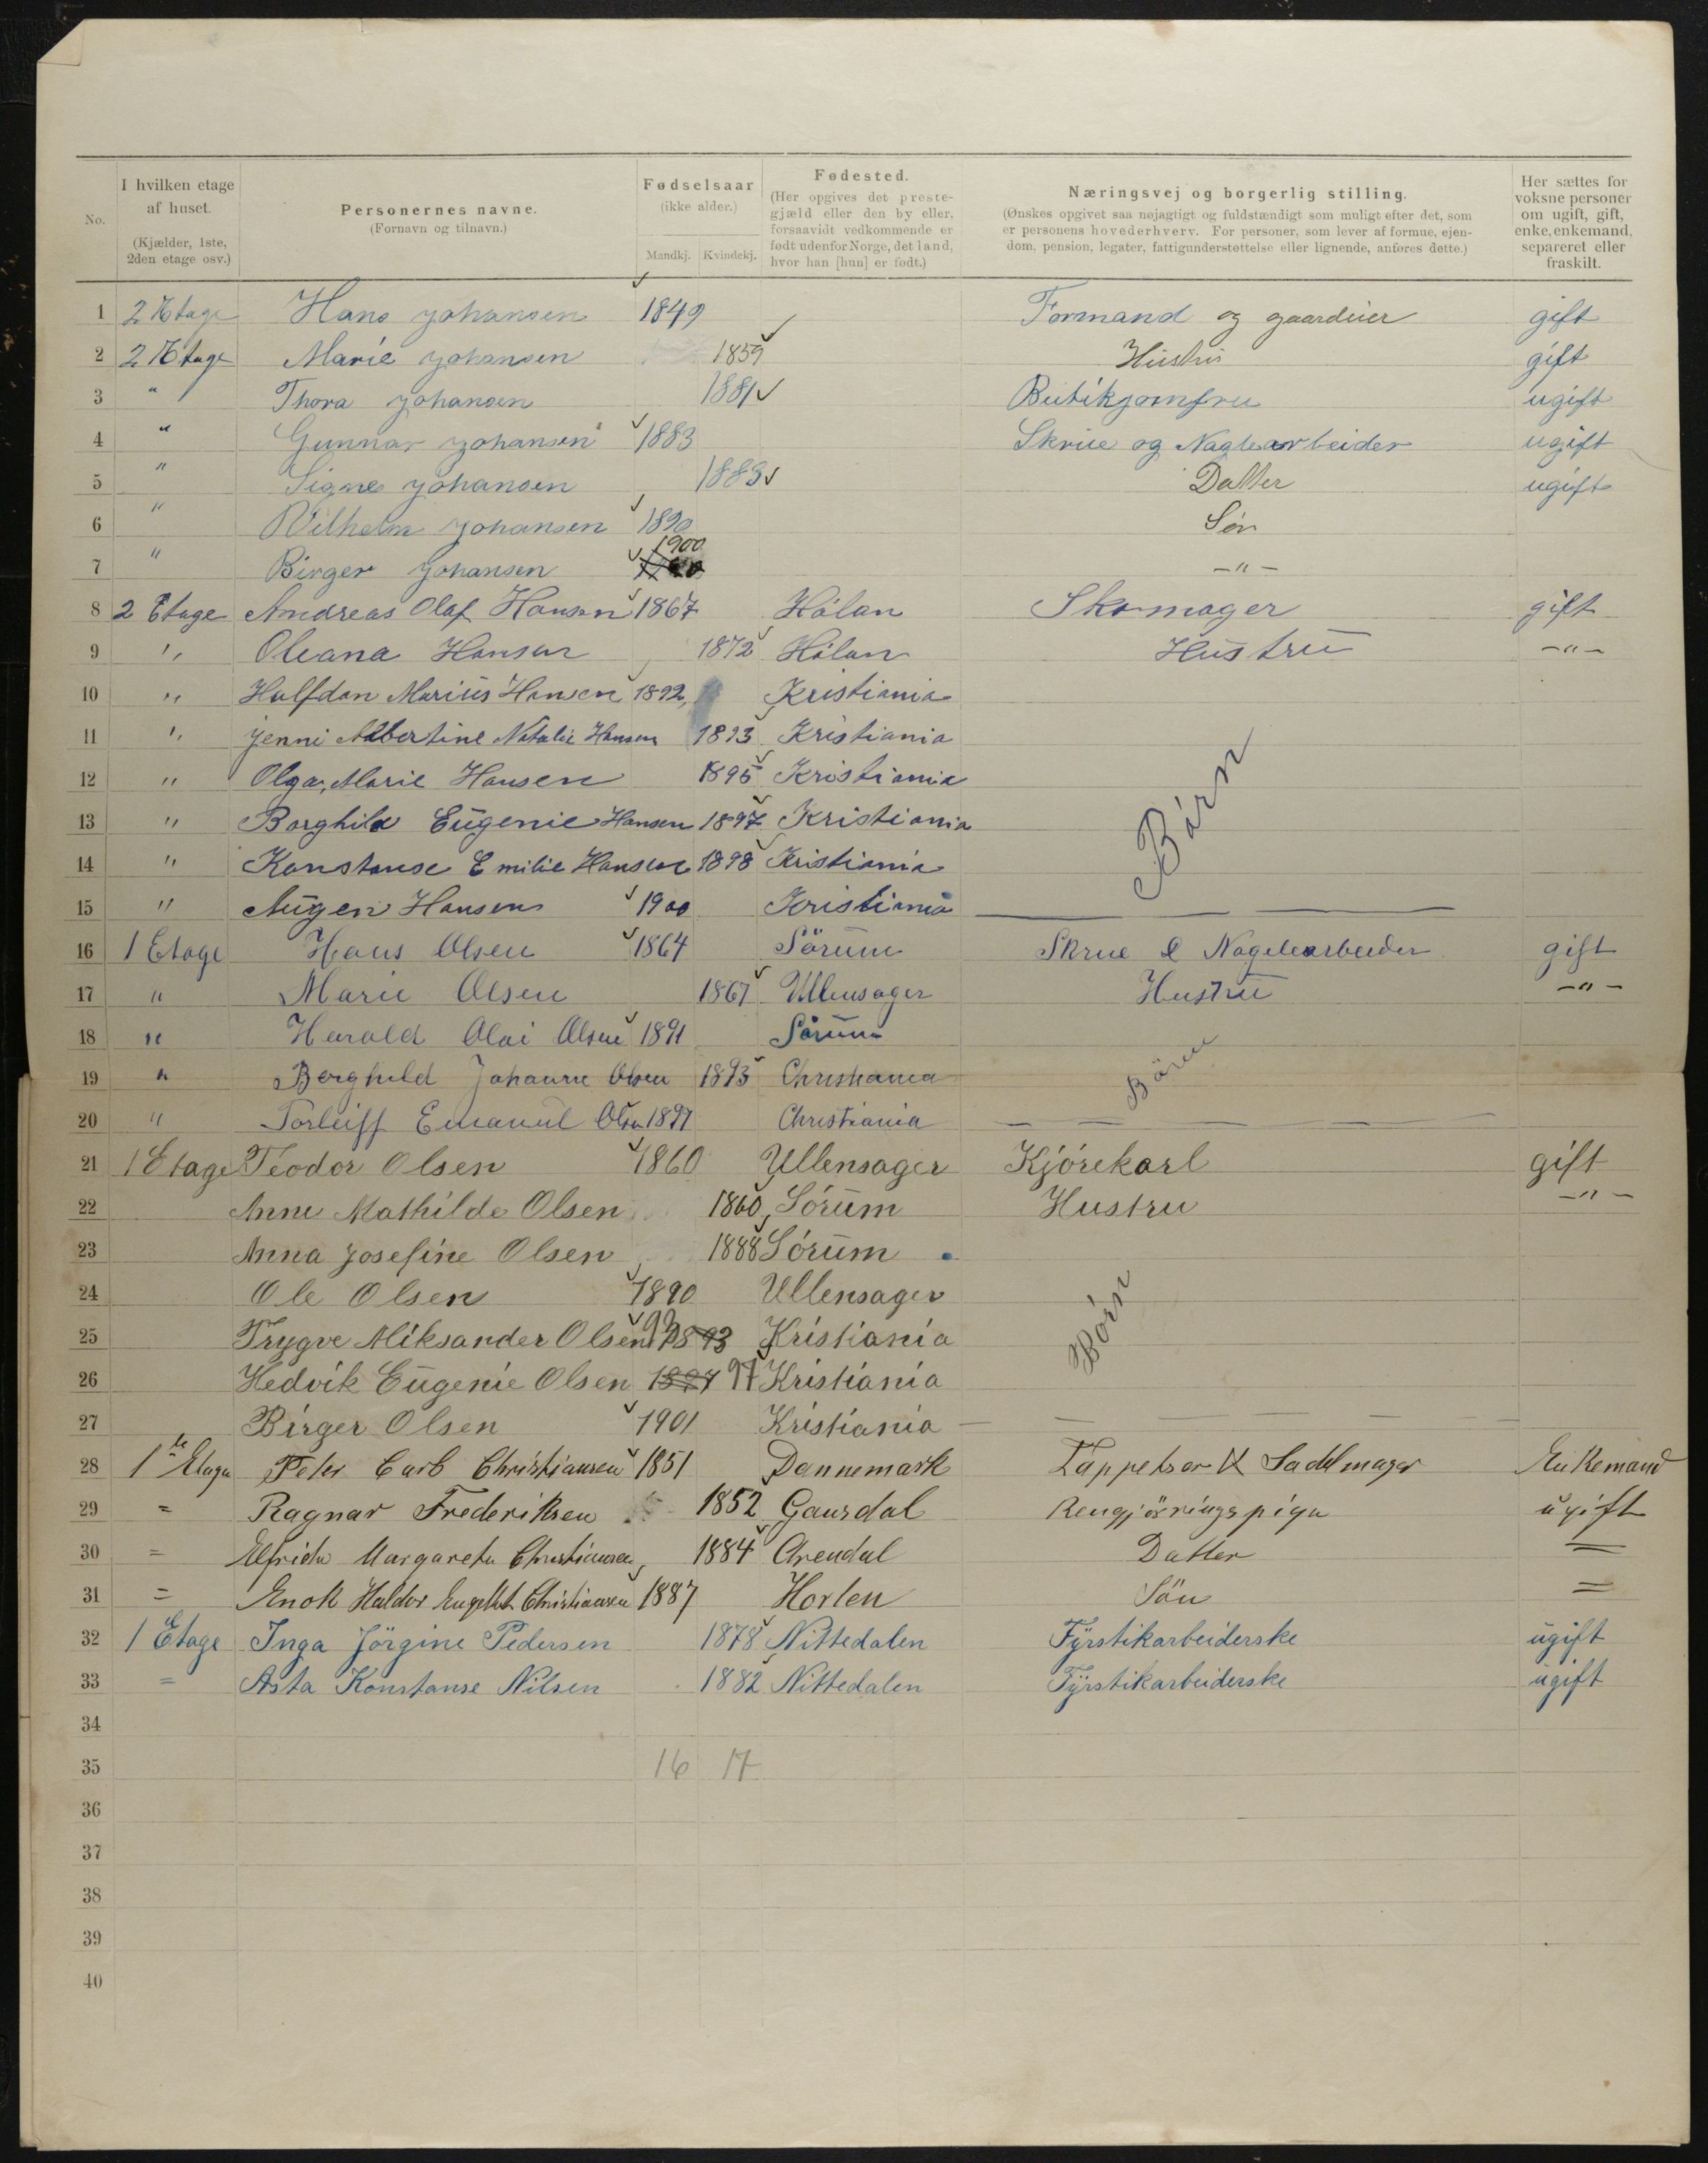 No.
I hvilken etage af huset.
(Kjælder, 1ste, 2den etage osv.)
Personernes navne.
(Fornavn og tilnavn.)
Fødselsaar
(ikke alder.)
Mandkj. Kvindekj.
Fødested.
(Her opgives det prestegjæld eller den by eller, forsaavidt vedkommende er født udenfor Norge, det land, hvor han [hun] er født.)
Næringsvej og borgerlig stilling.
(Ønskes opgivet saa nøjagtigt og fuldstændigt som muligt efter det, som er personens hovederhverv. For personer, som lever af formue, ejendom, pension, legater, fattigunderstøttelse eller lignende, anføres dette.)
Her sættes for voksne personer om ugift, gift, enke, enkemand, separeret eller fraskilt.
1 2 Etage Hans Johansen 1849 Formand og gaardeier gift
2 2 Etage Marie Johansen 1859 Hustru gift
3 " Thora Johansen 1881 Butikjomfru ugift
4 " Gunnar Johansen 1883 Skrue og Naglearbeider ugift
5 " Signe Johansen 1883 Datter ugift
6 " Vilhelm Johansen 1890 Søn
7 " Birger Johansen 1900 -"-
8 2 Etage Andreas Olaf Hansen 1867 Hölan Skomager gift
9 " Oleana Hansen 1872 Hölan Hustru -"-
10 " Halfdan Marius Hansen 1892 Kristiania
11 " Jenni Albertine Natalie Hansen 1893 Kristiania
12 " Olga Marie Hansen 1895 Kristiania
13 " Borghild Eugenie Hansen 1897 Kristiania Børn
14 " Konstanse Emilie Hansen 1898 Kristiania
15 " Augen Hansen 1900 Kristiania
16 1 Etage Hans Olsen 1864 Sörum Skrue & Naglearbeider gift
17 " Marie Olsen 1867 Ullensager Hustru -"-
18 " Harald Olai Olsen 1891 Sörum
19 " Borghild Johanne Olsen 1893 Christiania Börn
20 " Torleiff Emanuel Olsen 1897 Christiania
21 1 Etage Teodor Olsen 1860 Ullensager Kjörekarl gift
22 Anne Mathilde Olsen 1860 Sörum Hustru -"-
23 Anna Josefine Olsen 1888 Sörum
24 Ole Olsen 1890 Ullensager
25 Trygve Aliksander Olsen 1893 93 Kristiania Børn
26 Hedvik Eugenie Olsen 1897 97 Kristiania
27 Birger Olsen 1901 Kristiania
28 1ste Etage Peter Carl Christiansen 1851 Dannemark Tappetserer & Sadelmager Enkemand
29 = Ragnar Frederiksen 1852 Gausdal Rengjöringspige ugift
30 = Elfrida Margareta Christiansen 1884 Arendal Datter =
31 = Enok Haldor Christiansen 1887 Horten Sön =
32 1 Etage Inga Jörgine Pedersen 1878 Nittedalen Fyrstikarbeiderske ugift
33 = Asta Konstanse Nilsen 1882 Nittedalen Fyrstikarbeiderske ugift
34
35 16 17
36
37
38
39
40